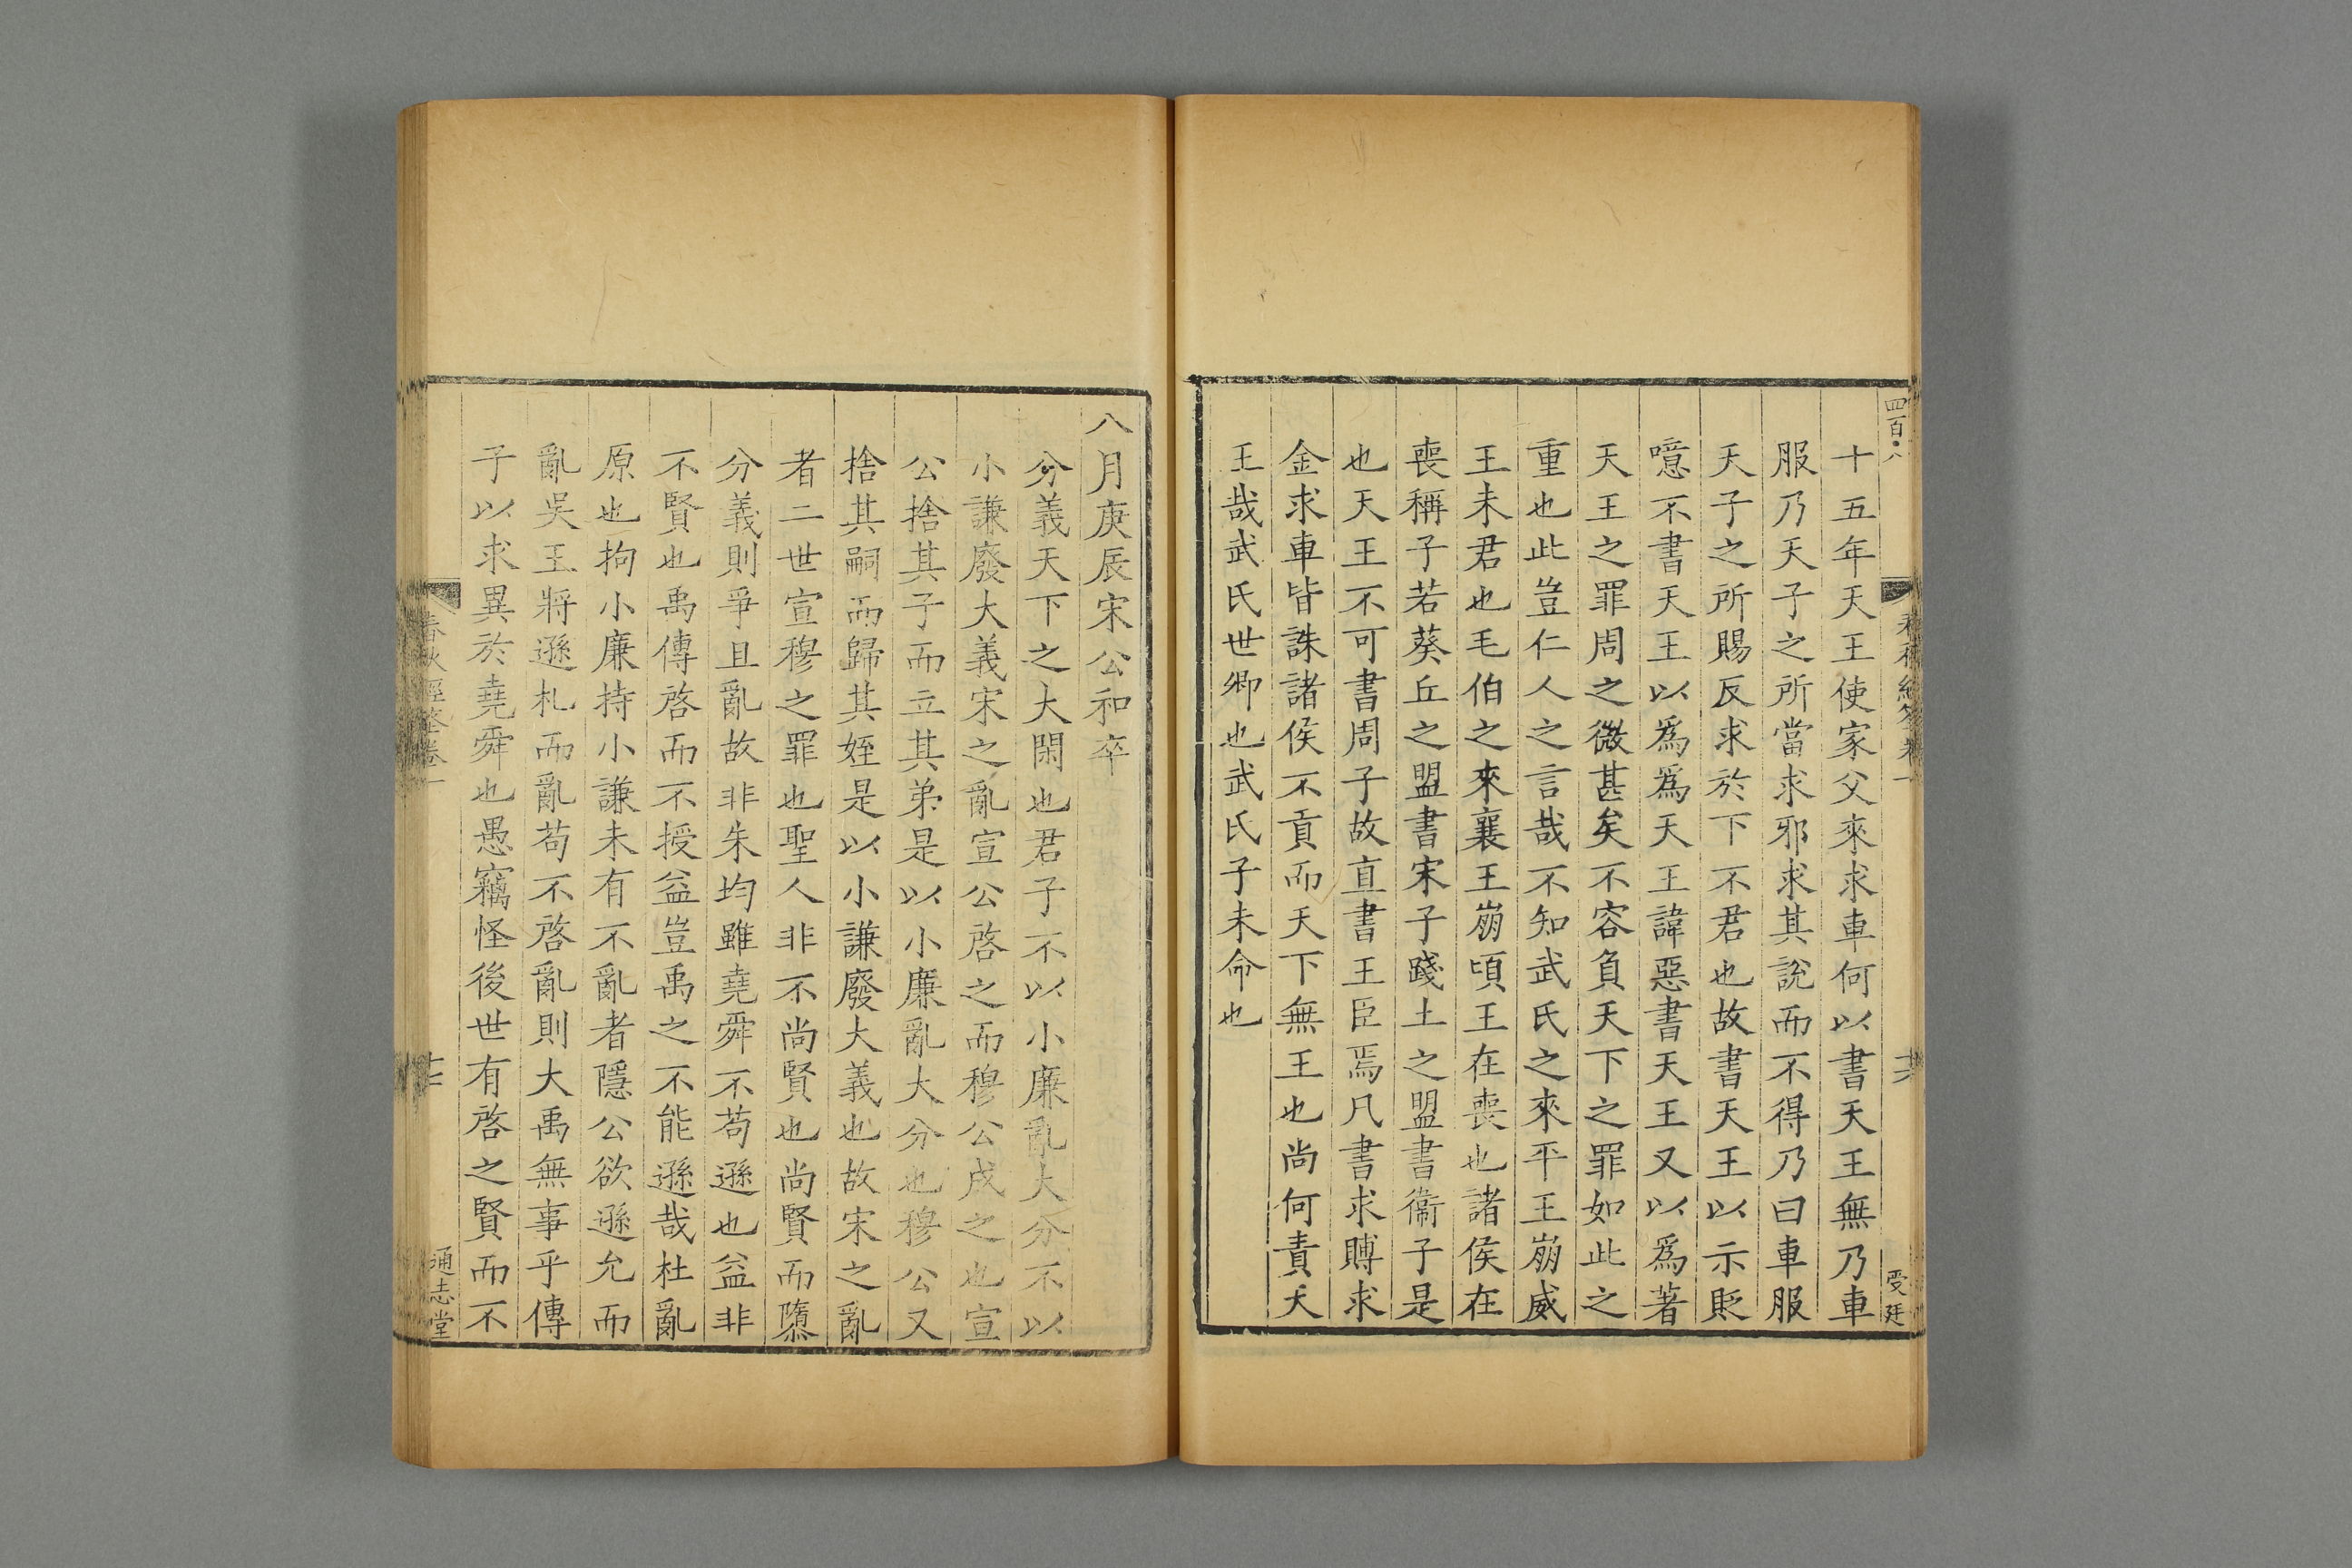 四百八
十五年天王使家父來求車何以書天王無乃車
服乃天子之所當求邪求其說而不得乃曰車服
天子之所賜反求於下不君也故書天王以示貶
噫不書天王以爲爲天王諱惡書天王又以爲著
天王之罪周之微甚矣不容負天下之罪如此之
重也此豈仁人之言哉不知武氏之來平王崩威
王未君也毛伯之來襄王崩頃王在喪也諸侯在
喪稱子若葵丘之盟書宋子踐土之盟書衞子是
也天王不可書周子故直書王臣焉凡書求賻求
金求車皆誅諸侯不貢而天下無王也尚何責天
王哉武氏世卿也武氏子未命也
八月庚辰宋公和卒
分義天下之大閑也君子不以小廉亂大分不以
小謙廢大義宋之亂宣公啓之而穆公成之也宣
公捨其子而立其弟是以小廉亂大分也穆公又
捨其嗣而歸其姪是以小謙廢大義也故宋之亂
者二世宣穆之罪也聖人非不尚賢也尚賢而隳
分義則爭且亂故非朱均雖堯舜不苟遜也益非
不賢也禹傳啓而不授益豈禹之不能遜哉杜亂
原也拘小廉持小謙未有不亂者隱公欲遜允而
亂吳王將遜札而亂苟不啓亂則大禹無事乎傳
子以求異於堯舜也愚竊怪後世有啓之賢而不
春秋經筌卷一
通志堂